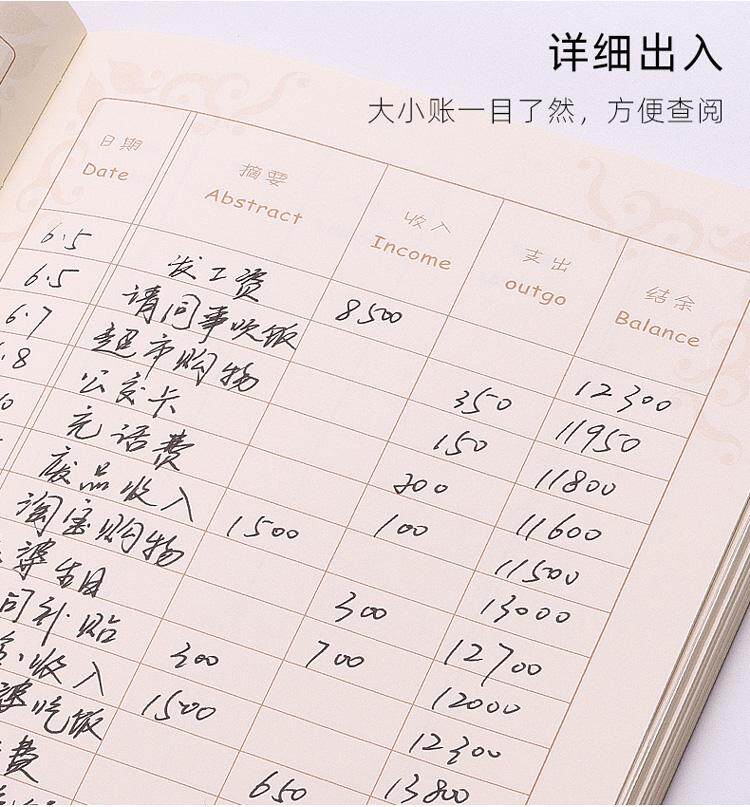 详细出入
大小账一目了然，方便查阅
日期 摘要 收入 支出 结余
Date Abstract Income outgo Balance
6.5 发工资 8500 12300
6.5 请同事吃饭 350 11950
6.7 超市购物 150 11800
.8 公交卡 200 11600
0 充话费 100 11500
废品收入 1500 13000
淘宝购物 300 12700
婆生日 700 12000
司补贴 300 12300
收入 1500 13800
婆吃饭 650
费